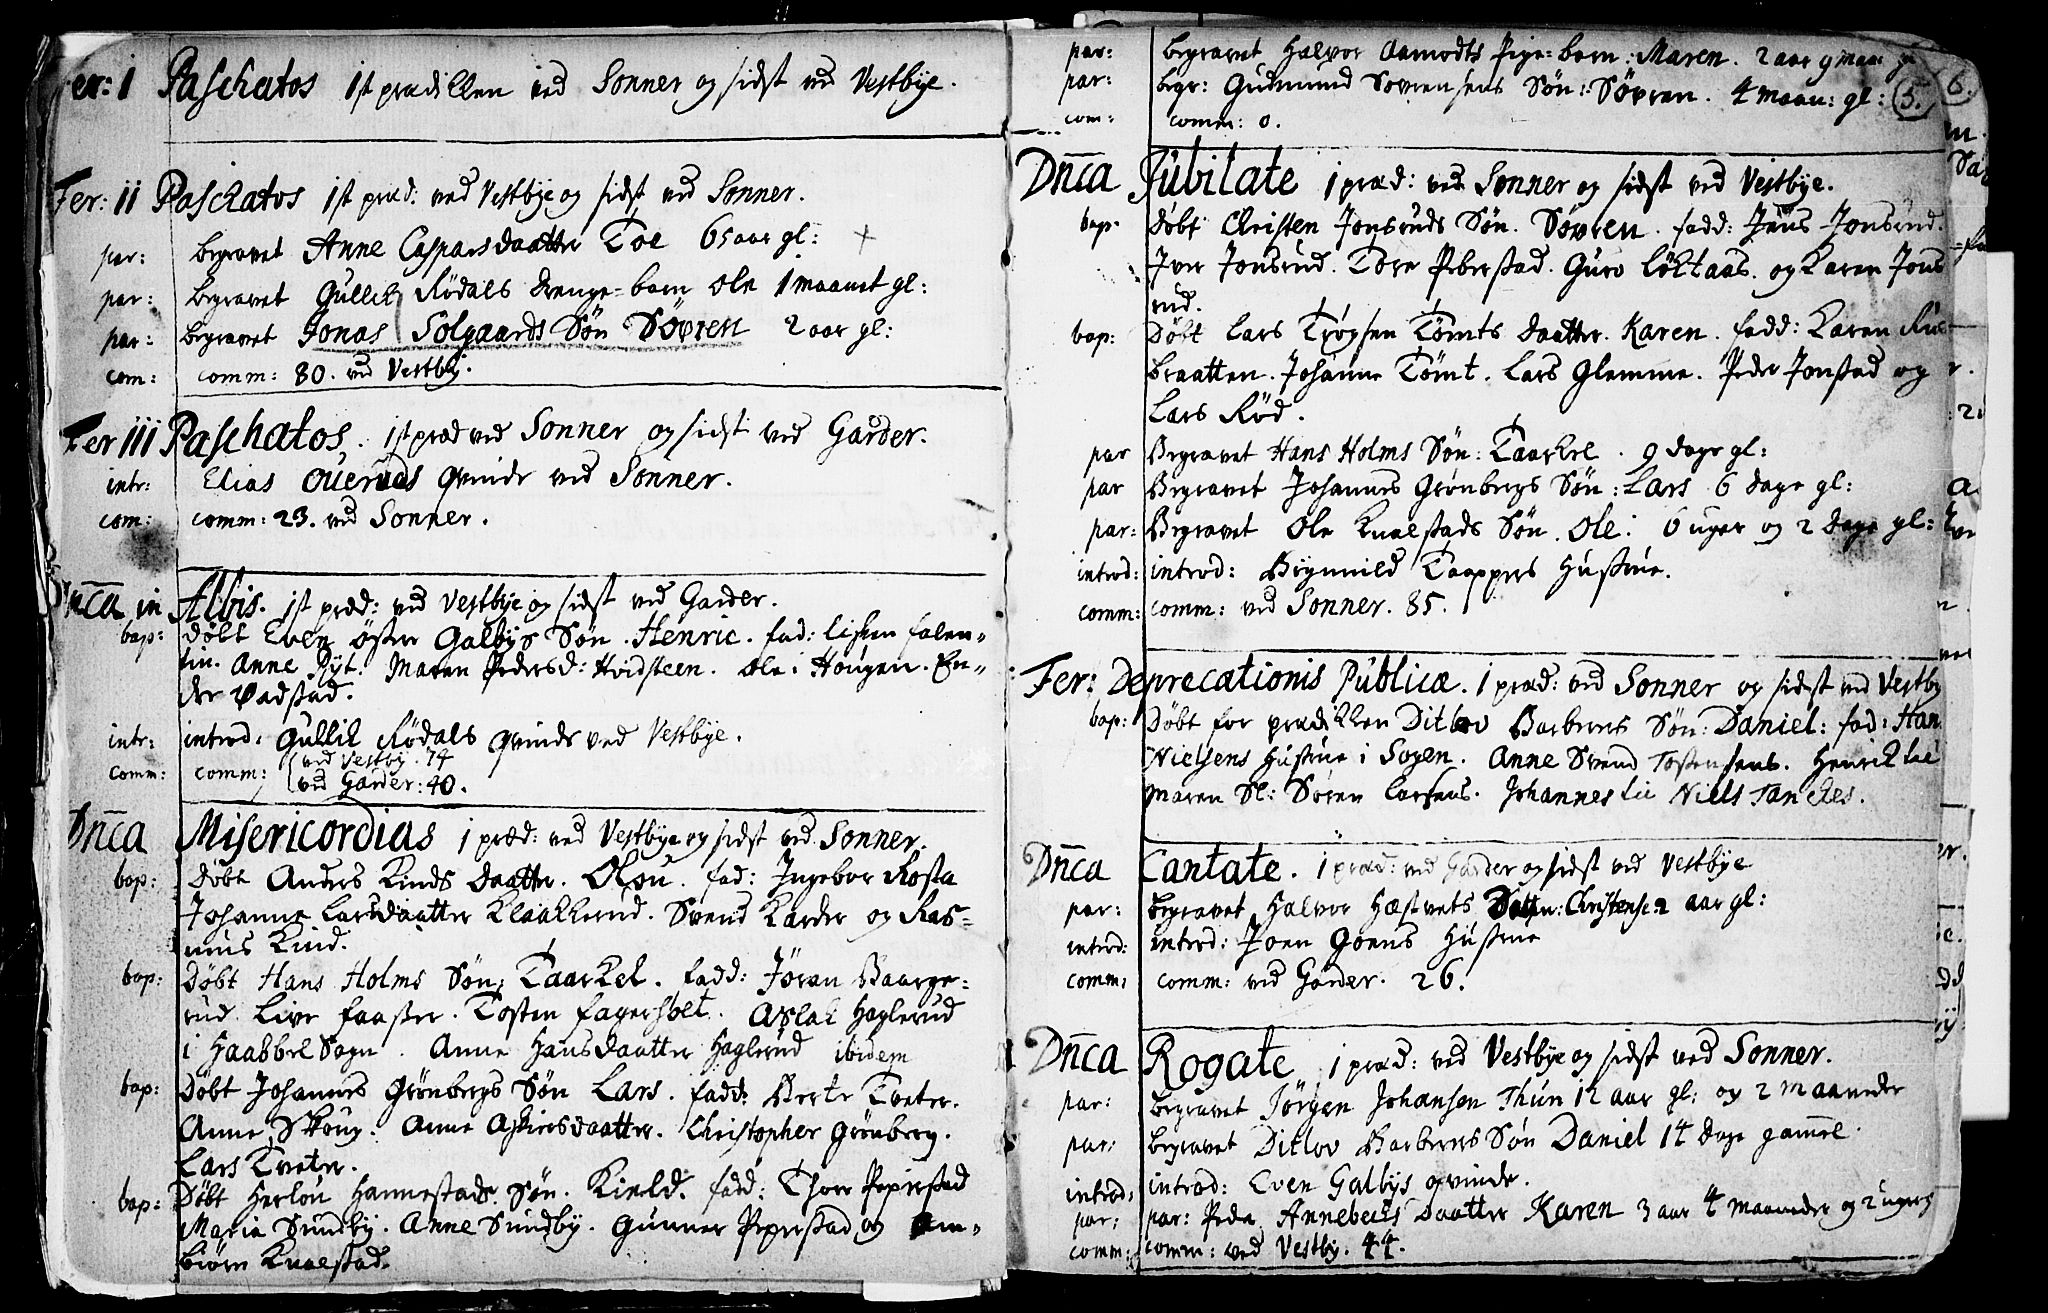 Fer: I Paschatos 1st prædiken ved Sonner og sidst ved Vestbÿe.
Fer: II Paschatos 1st præd: ved Vestbÿe og sidst ved Sonner.
par: begravet Anne Caspars daatter Toe 65 aar gl: +
par: begravet Gullich Rödals drenge=barn Ole 1 maanet gl:
par: begravet Jonas Solgaards Sön Sövren 2 aar gl:
com: comm: 80. ved Vestbÿ.
Fer III Paschatos, 1st præd ved Sonner og sidst ved Garder.
intr: Elias Oueruds qvinde ved Sonner.
com: comm: 23. ved Sonner.
Dn̄ca in Albis. 1st præd: ved Vestbÿe og sidst ved Garder.
bap: döbt Even öster Galbÿs Sön. Henric. fad: Lisken falen=
tin. Anne Rÿt. Maren Pedersd: Hvidsteen. Ole i Hougen. En=
der Vadstad.
intr: introd: Gullik Rödals qvinde ved Vestbÿe.
comm: comm: ved Vestbÿ. 74
ved Garder: 40.
Dn̄ca Misericordias 1 præd: ved Vestbÿe og sidst ved Sonner.
bap: döbt Anders Kinds daatter. Olou. fad: Ingebor Rosta
Johanne Larsdaatter Klaakkerud. Svend Karder og Ras=
mus Kind.
bap: döbt Hans Holms Sön: Taarkel. fadd: Jöran Baarge=
rud. Live faaster. Tosten fagerholt. Aslak Haglerud
i Haabbel Sogn. Anne Hansdaatter Haglerud ibidem
bap: döbt Johannes Grönbergs Sön Lars. fadd: Berte Tveter.
Anne Skoug. Anne Askiersdaatter. Christopher Grönberg.
Lars Tveter.
bap: Döbt Herlou Hannestads Sön. Kield. fadd: Thore Peperstad
Maria Sundbÿ. Anne Sundbÿ. Gunner Peperstad og Am=
biörn Knalstad.
par: begravet Halvor Aamodts Pige=barn: Maren. 2 aar 9 maan gl
par: begr: Gudmund Sövrensens Sön: Sövren. 4 maan: gl: 5. 6.
com: comm: 0.
Dn̄ca Jubilate 1 præd: ved Sonner og sidst ved Vestbÿe.
bap: döbt Christen Jonsruds Sön. Sövren. fadd: Jens Jonsrud.
Iver Jonsrud. Tore Peberstad. Guro Löktaas. og Karen Jons
rud.
bap: Döbt Lars Trögsen Tömts daatter. Karen. fadd: Karen
braatten. Johanne Tömt. Lars Glemme. Peder Jonstad og
Lars Röd.
par Begravet Hans Holms Sön: Taarkel. 9 dage gl:
par Begravet Johannes Grönbergs Sön: Lars 6 dage gl:
par: Begravet Ole Knalstads Sön. Ole: 6 uger og 2 dage gl:
introd: introd: Brÿnnild Taappers Hustrue.
comm: comm: ved Sonner. 85.
Fer: Deprecationis Publicæ. 1 præd: ved Sonner og sidst ved Vestby
bap: Döbt for prædikken Ditlov Barberers Sön: Daniel: fad: Han
Nielsens Hustrue i Sogen. Anne Svend Tostensens. Henrik Lie
Maren Sl: Sören Larsens. Johannes Lie Niels Tanckes.
Dn̄ca Cantate. 1 præd: ved Garder og sidst ved Vestbÿe
par: begravet Halvor Hæstvets Datter: Christense 2 aar gl:
introd: introd: Joen Goens Hustrue
comm: comm: ved Garder. 26.
Dn̄ca Rogate 1 præd: ved Vestbÿe og sidst ved Sonner.
par: begravet Jörgen Johansen Thun 12 aar gl: og 2 maaneder
par: begravet Ditlov Barberers Sön Daniel 14 dage gamel.
introd: introd: Even Galbÿs qvinde.
par: par: Peder Annebeks daatter Karen 3 aar 4 maaneder og 2 uger g
comm: comm: ved Vestbÿ. 44.